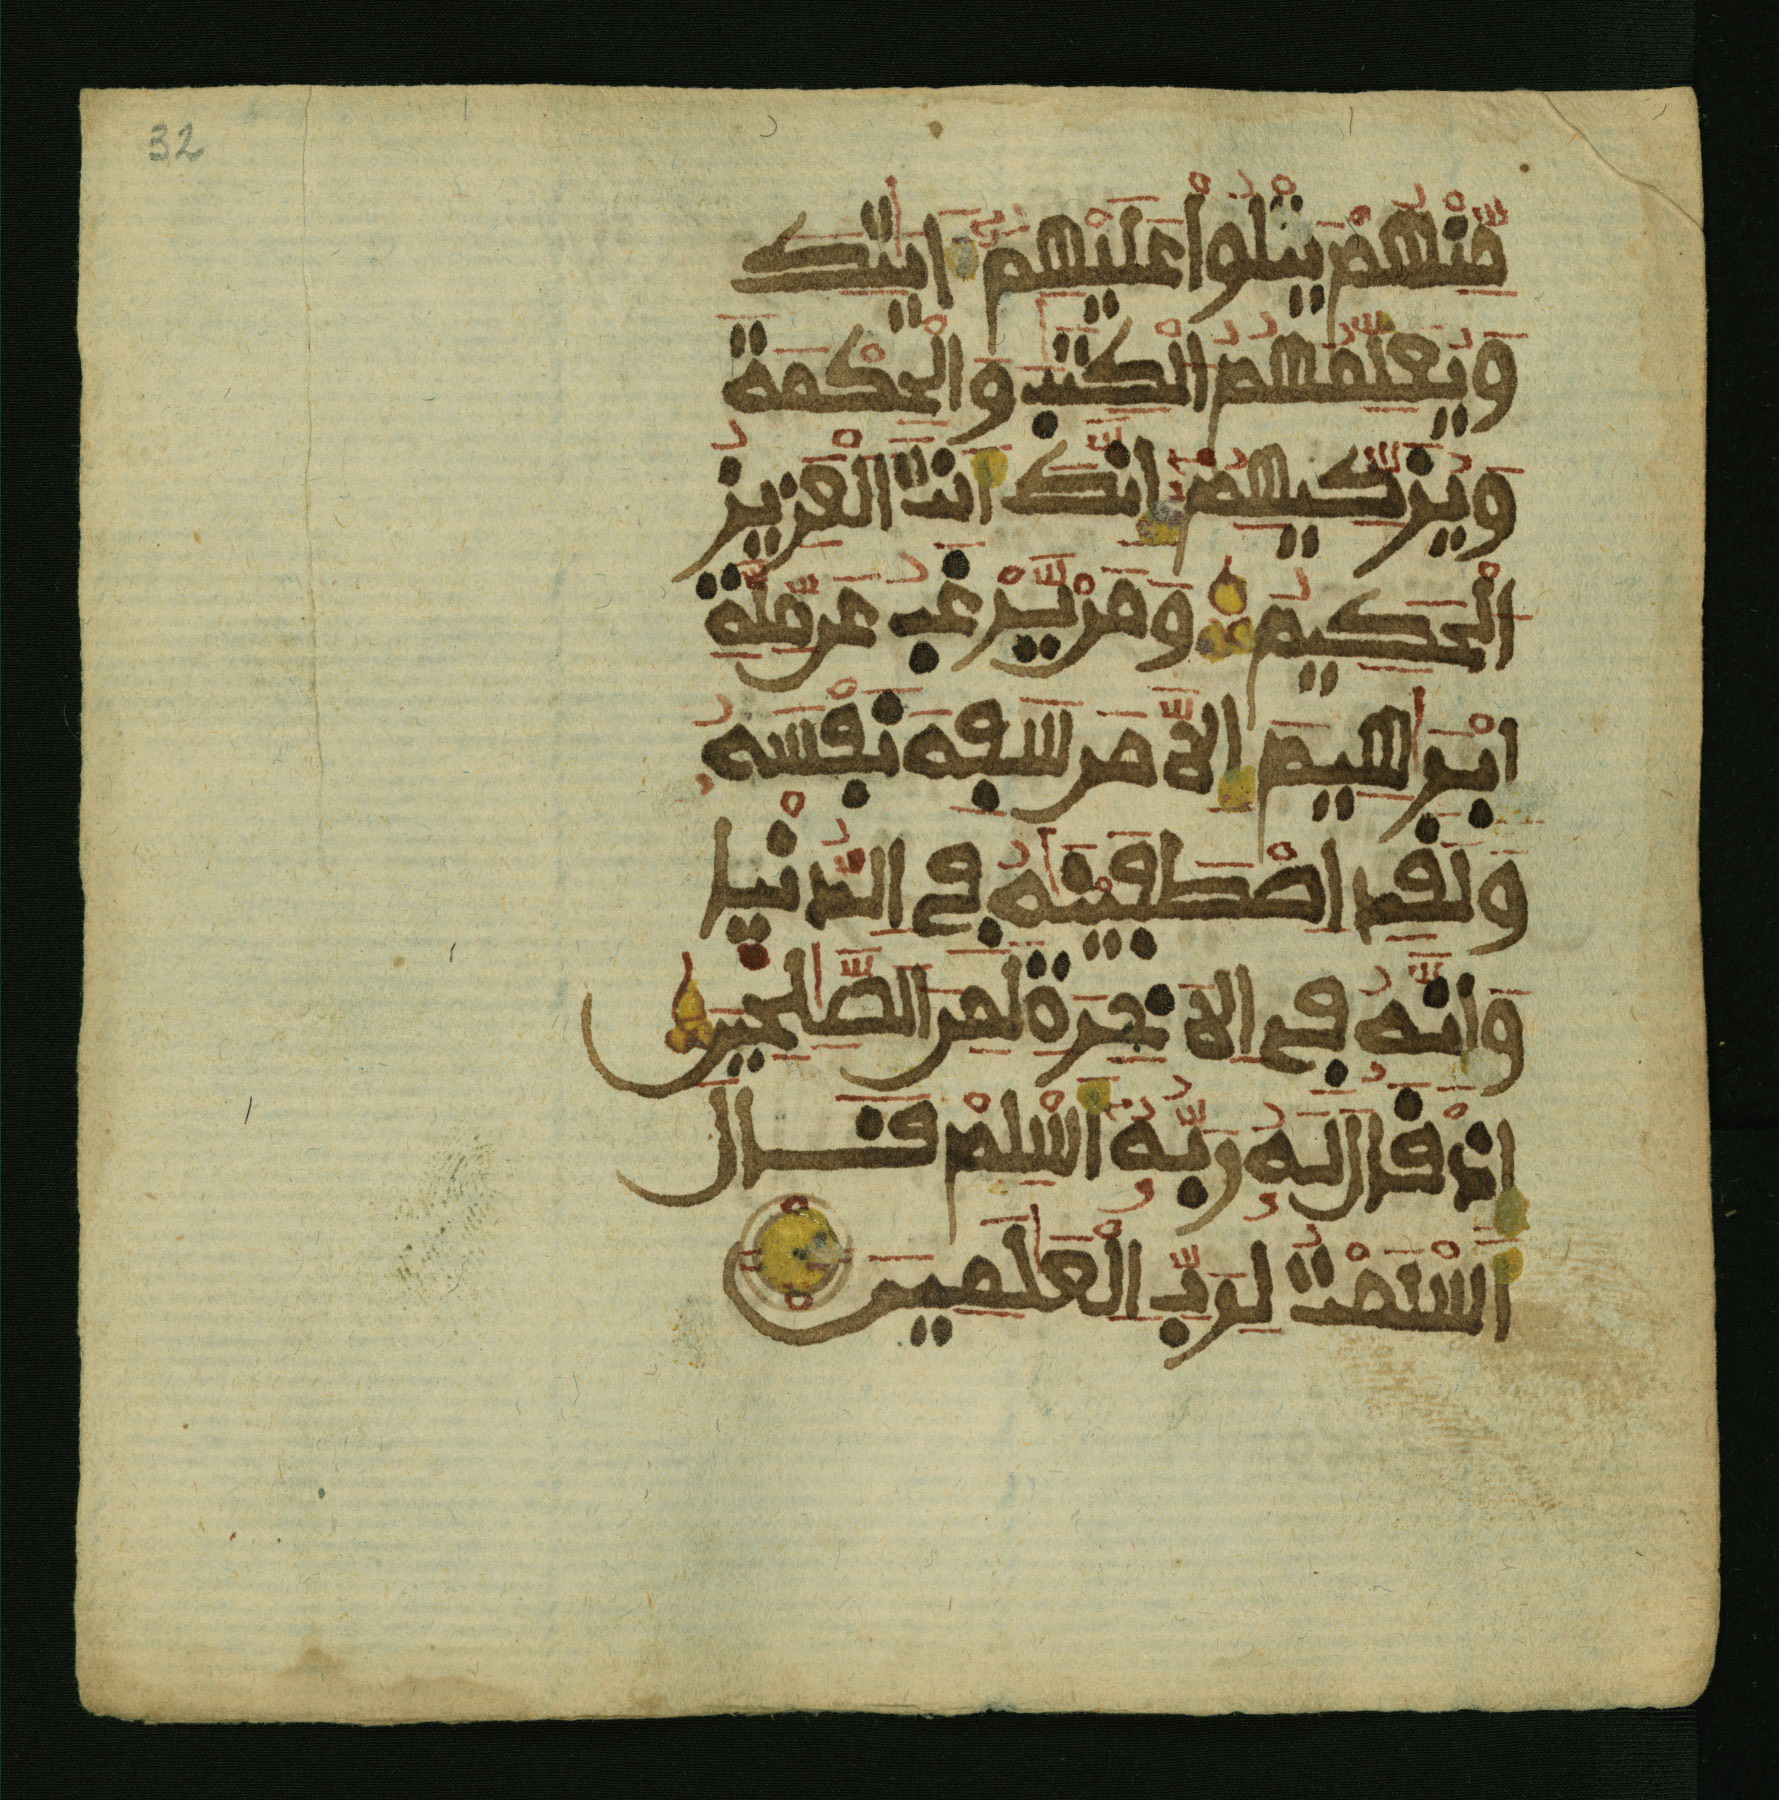 32
مِّنْهُمْ يَتْلُواْ عَلَيْهِمُۥٓ ءَايَٰتِكَ
وَيُعَلِّمُهُمُ الْكِتَٰبَ وَالْحِكْمَةَ
وَيُزَكِّيهِمُۥٓ إِنَّكَ أَنتَ الْعَزِيزُ
الْحَكِيمُ وَمَنْ يَّرْغَبُ عَن مِّلَّةِ
إِبْرَٰهِيمَ إِلَّا مَن سَفِهَ نَفْسَهُۥ
وَلَقَدِ اصْطَفَيْنَٰهُ فِي الدُّنْيَا
وَإِنَّهُۥ فِي الَاخِرَةِ لَمِنَ الصَّٰلِحِينَ
إِذْ قَالَ لَهُۥ رَبُّهُۥٓ أَسْلِمْ قَالَ
أَسْلَمْتُ لِرَبِّ الْعَٰلَمِينَ